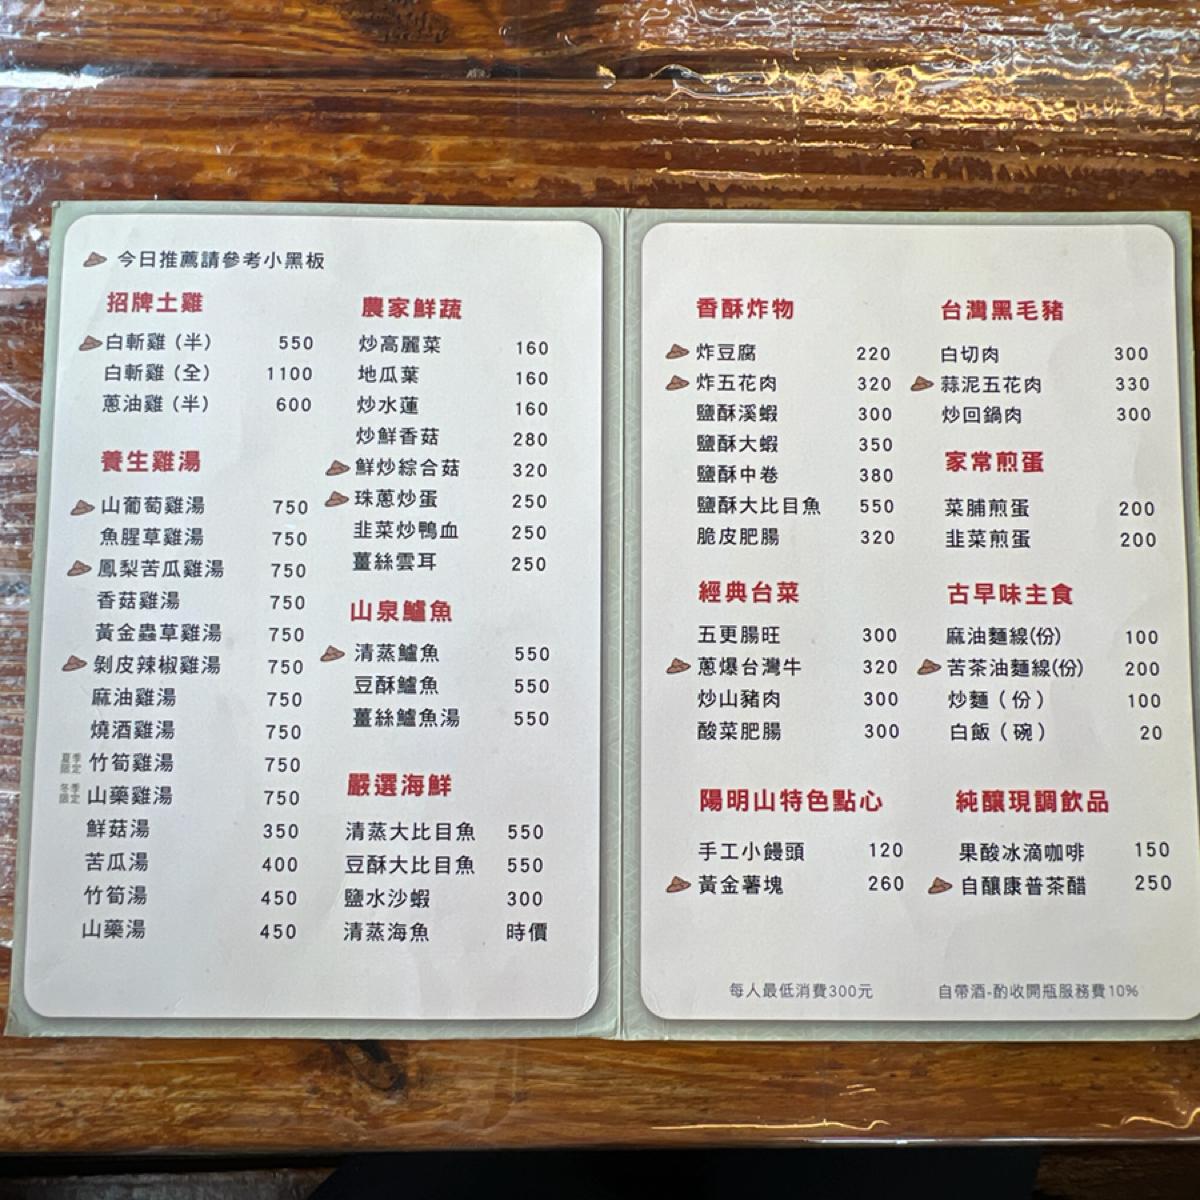 今日推薦請參考小黑板
招牌土雞
白斬雞（半） 550
白斬雞（全） 1100
蔥油雞（半） 600
養生雞湯
山葡萄雞湯 750
魚腥草雞湯 750
鳳梨苦瓜雞湯 750
香菇雞湯 750
黃金蟲草雞湯 750
剝皮辣椒雞湯 750
麻油雞湯 750
燒酒雞湯 750
夏季限定 竹筍雞湯 750
冬季限定 山藥雞湯 750
鮮菇湯 350
苦瓜湯 400
竹筍湯 450
山藥湯 450
農家鮮蔬
炒高麗菜 160
地瓜葉 160
炒水蓮 160
炒鮮香菇 280
鮮炒綜合菇 320
珠蔥炒蛋 250
韭菜炒鴨血 250
薑絲雲耳 250
山泉鱸魚
清蒸鱸魚 550
豆酥鱸魚 550
薑絲鱸魚湯 550
嚴選海鮮
清蒸大比目魚 550
豆酥大比目魚 550
鹽水沙蝦 300
清蒸海魚 時價
香酥炸物
炸豆腐 220
炸五花肉 320
鹽酥溪蝦 300
鹽酥大蝦 350
鹽酥中卷 380
鹽酥大比目魚 550
脆皮肥腸 320
經典台菜
五更腸旺 300
蔥爆台灣牛 320
炒山豬肉 300
酸菜肥腸 300
陽明山特色點心
手工小饅頭 120
黃金薯塊 260
每人最低消費300元
台灣黑毛豬
白切肉 300
蒜泥五花肉 330
炒回鍋肉 300
家常煎蛋
菜脯煎蛋 200
韭菜煎蛋 200
古早味主食
麻油麵線(份) 100
苦茶油麵線(份) 200
炒麵（份） 100
白飯（碗） 20
純釀現調飲品
果酸冰滴咖啡 150
自釀康普茶醋 250
自帶酒-酌收開瓶服務費10%